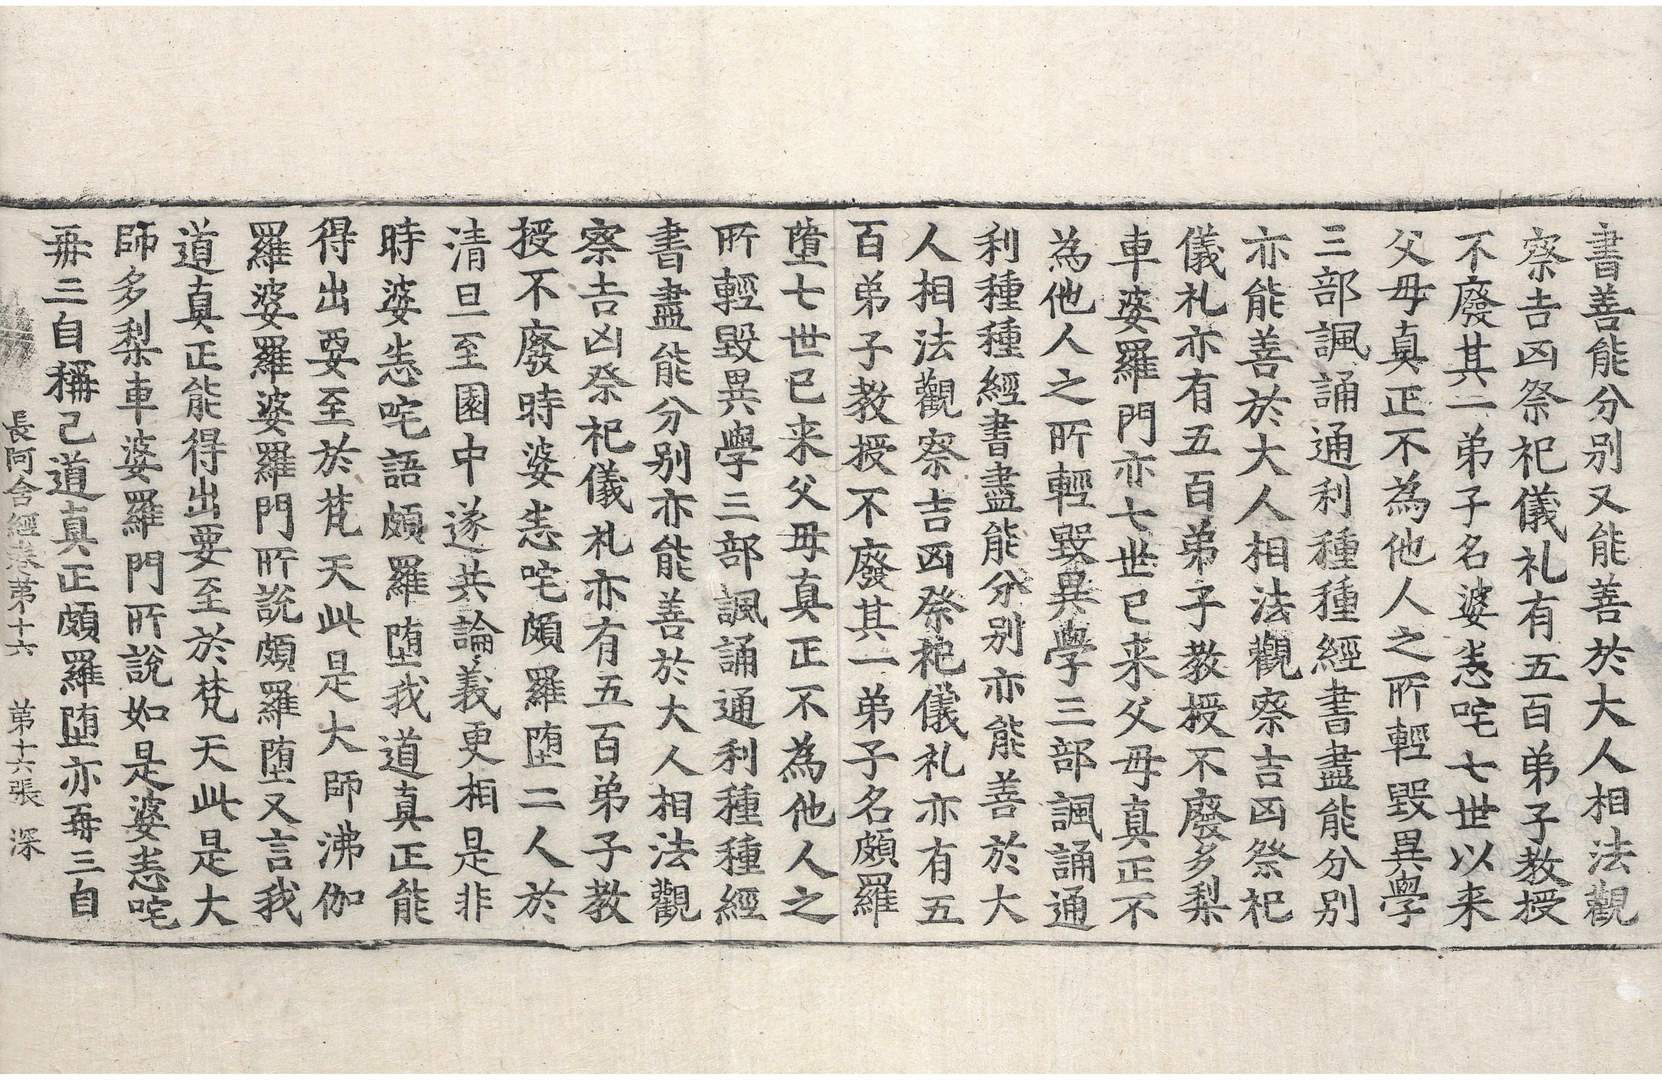 書善能分别又能善於大人相法觀
察吉凶祭祀儀礼有五百弟子教授
不廢其二弟子名婆悉咤七世以来
父母真正不為他人之所輕毀異學
三部諷誦通利種種經書盡能分别
亦能善於大人相法觀察吉凶祭祀
儀礼亦有五百弟子教授不廢多梨
車婆羅門亦七世已来父母真正不
為他人之所輕毀異學三部諷誦通
利種種經書盡能分别亦能善於大
人相法觀察吉凶祭祀儀礼亦有五
百弟子教授不廢其一弟子名頗羅
墮七世已来父母真正不為他人之
所輕毀異學三部諷誦通利種種經
書盡能分别亦能善於大人相法觀
察吉凶祭祀儀礼亦有五百弟子教
授不廢時婆悉咤頗羅堕二人於
清旦至園中遂共論義更相是非
時婆悉咤語頗羅堕我道真正能
得出要至於梵天此是大師沸伽
羅婆羅婆羅門所説頗羅堕又言我
道真正能得出要至於梵天此是大
師多梨車婆羅門所說如是婆悉咤
再三自稱己道真正頗羅堕亦再三自
長阿含經卷第十六　第十六張　深